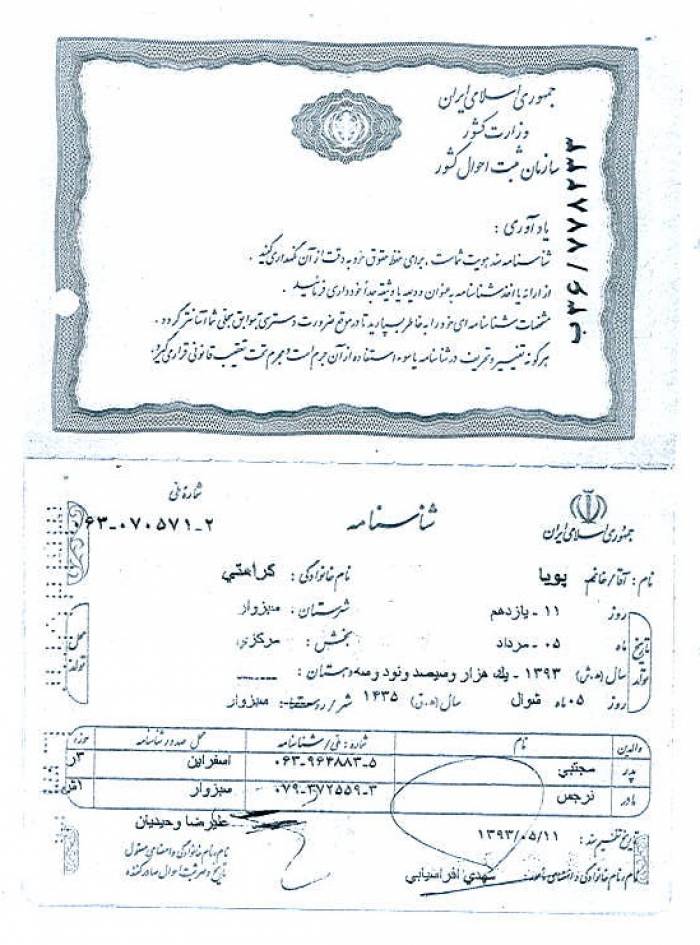 جمهوری اسلامی ایران
وزارت کشور
سازمان ثبت احوال کشور
ب۳۶/۷۷۸۲۳۳
یادآوری :
شناسنامه سند هویت شماست ، برای حفظ حقوق خود به دقت از آن نگهداری کنید .
از ارائه یا اخذ شناسنامه به عنوان ودیعه یا وثیقه جداً خودداری فرمائید .
مشخصات شناسنامه ای خود را به خاطر بسپارید تا در موقع ضرورت دسترسی به سوابق سجلی شما آسانتر گردد .
هرگونه تغییر و تحریف در شناسنامه یا سوء استفاده از آن جرم است و مجرم تحت تعقیب قانونی قرار می گیرد
جمهوری اسلامی ایران
شناسنامه
شمارهٔ ملی
۰۶۳-۰۷۰۵۷۱-۲
نام : آقا/خانم پویا نام خانوادگی : کراهتی
تاریخ تولد
روز ۱۱ - یازدهم
ماه ۰۵ - مرداد
سال (ه.ش) ۱۳۹۳ - یک هزار و سیصد و نود و سه
روز ۰۵ ماه شوال سال (ه.ق) ۱۴۳۵
محل تولد
شهرستان : سبزوار
بخش : مرکزی
دهستان : ------
شهر/روستا : سبزوار
والدین نام شماره : ملی/شناسنامه محل صدور شناسنامه حوزه
پدر مجتبی ۰۶۳-۹۶۴۸۸۳-۵ اسفراین ۳ر
مادر نرجس ۰۷۹-۳۷۲۵۵۹-۳ سبزوار
تاریخ تنظیم سند : ۱۳۹۳/۰۵/۱۱
نام و نام خانوادگی و امضای مأمور : مهدی افراسیابی
علیرضا وحیدیان
نام و نام خانوادگی و امضای مسئول